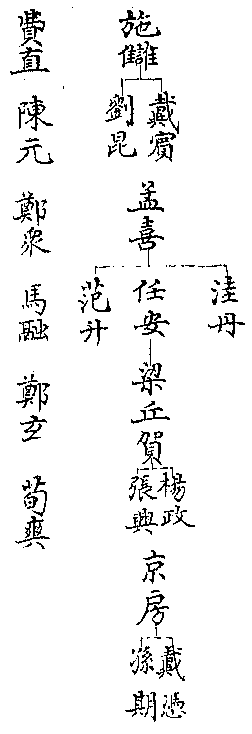 施讎
戴賓
劉昆
孟喜
洼丹
任安
范升
梁丘賀
楊政
張興
京房
戴憑
孫期
費直
陳元
鄭衆
馬融
鄭玄
荀爽